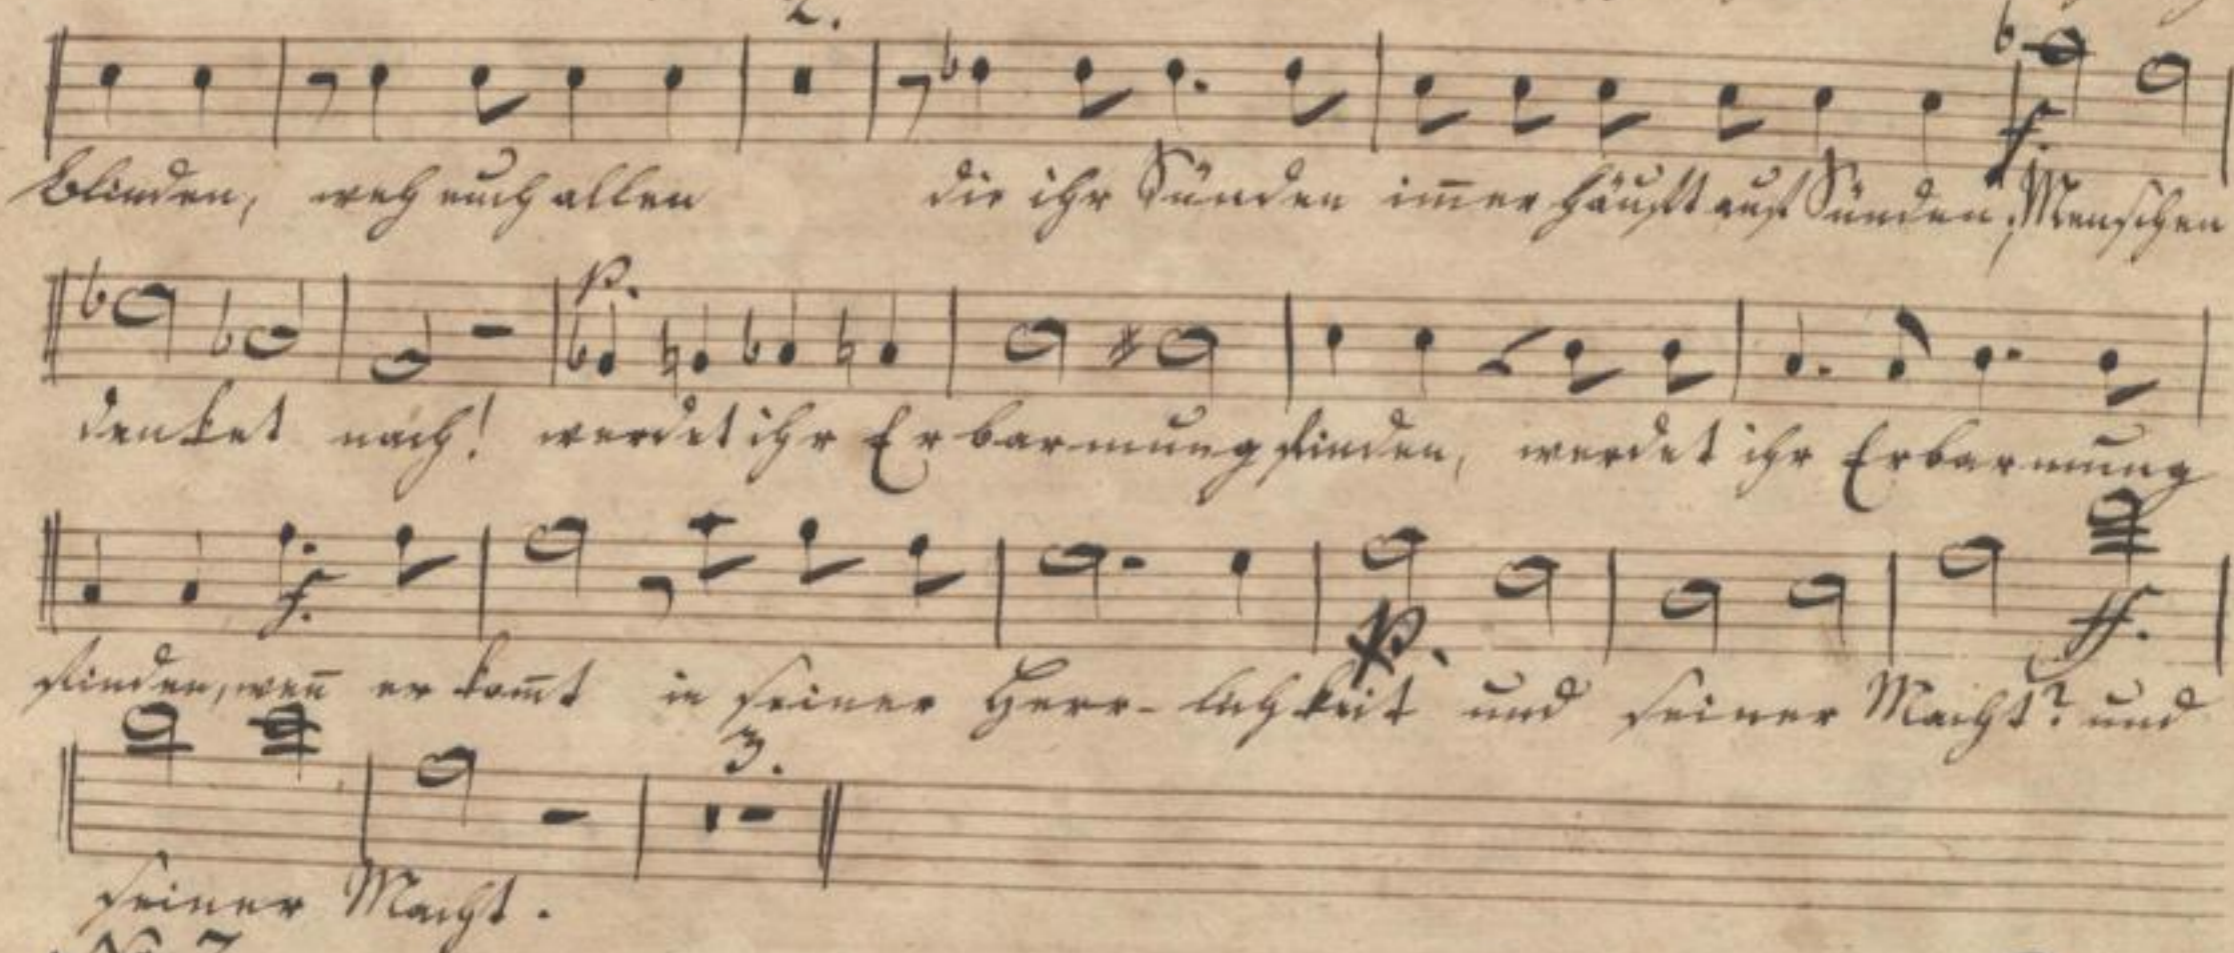 2.
Blinden, weh euch allen die ihr Sünden im̅er häuft auf Sünden; Menschen
f.
p.
denket nach! werdet ihr Erbarmung finden, werdet ihr Erbarmung
f. p. ff.
finden, wen̅ er kom̅t in seiner Herr- lichkeit und seiner Macht? und
3.
seiner Macht.